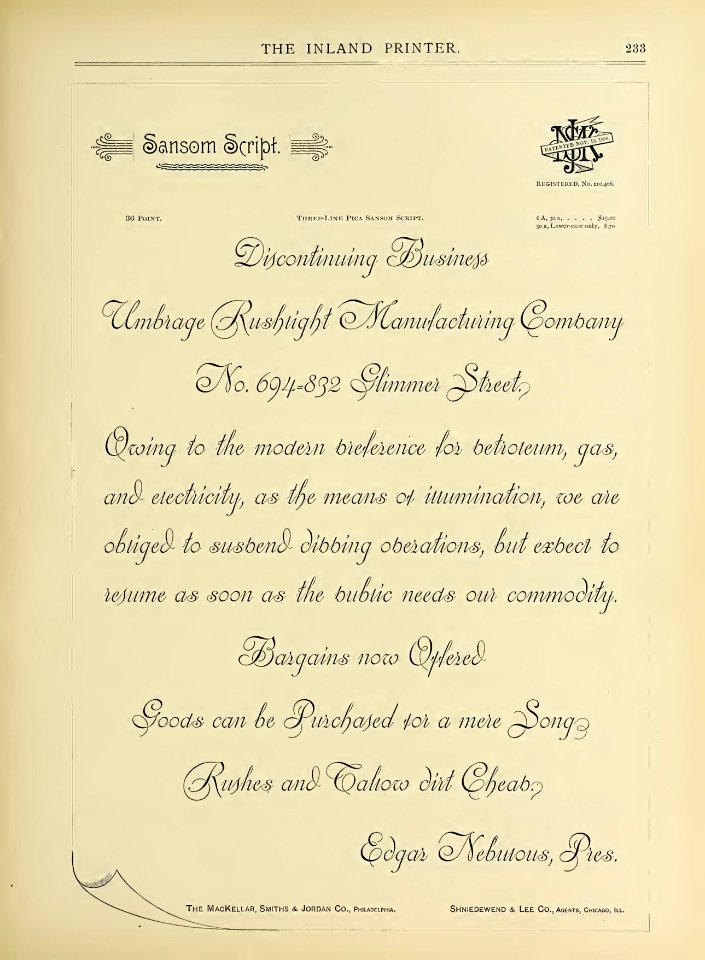 THE INLAND PRINTER.
233
Sansom Script.
PATENTED NOV.
REGISTERED, No. 210,406.
36 POINT.
THREE-LINE PICA SANSOM SCRIPT.
6 A, 30 a, . . . . . $15.10
30 a, Lower-case only, 8.70
Discontinuing Business
Umbrage Rushlight Manufacturing Company
No. 694-832 Glimmer Street.
Owing to the modern preference for petroleum, gas,
and electricity, as the means of illumination, we are
obliged to suspend dipping operations, but expect to
resume as soon as the public needs our commodity.
Bargains now Offered
Goods can be Purchased for a mere Song
Rushes and Tallow dirt Cheap.
Edgar Nebulous, Pres.
THE MACKELLAR, SMITHS & JORDAN CO., PHILADELPHIA.
SHNIEDEWEND & LEE CO., AGENTS, CHICAGO, ILL.